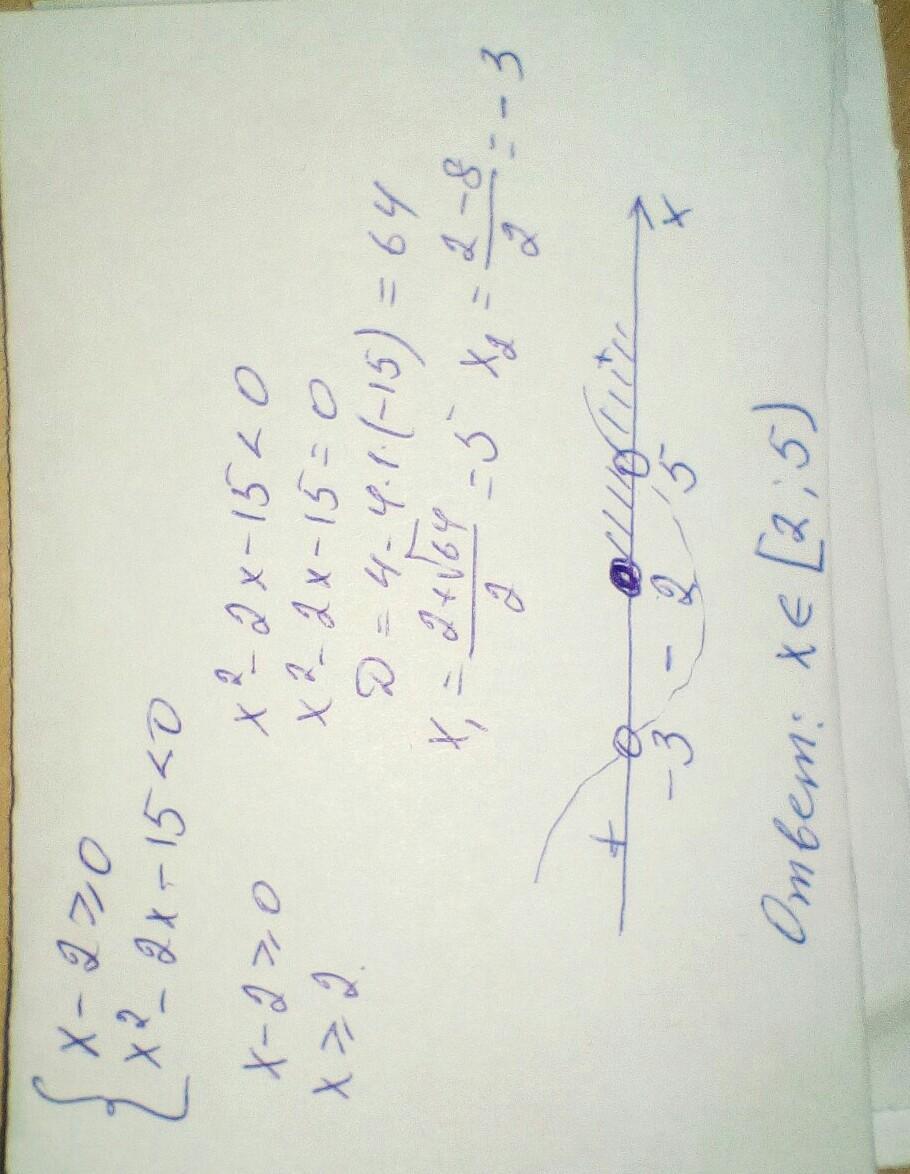 { x - 2 ≥ 0
x² - 2x - 15 < 0
x - 2 ≥ 0
x ≥ 2.
x² - 2x - 15 < 0
x² - 2x - 15 = 0
D = 4 - 4·1·(-15) = 64
x₁ = (2+√64)/2 = 5 x₂ = (2-8)/2 = -3
+ - +
-3 2 5 x
Ответ: x ∈ [2; 5)